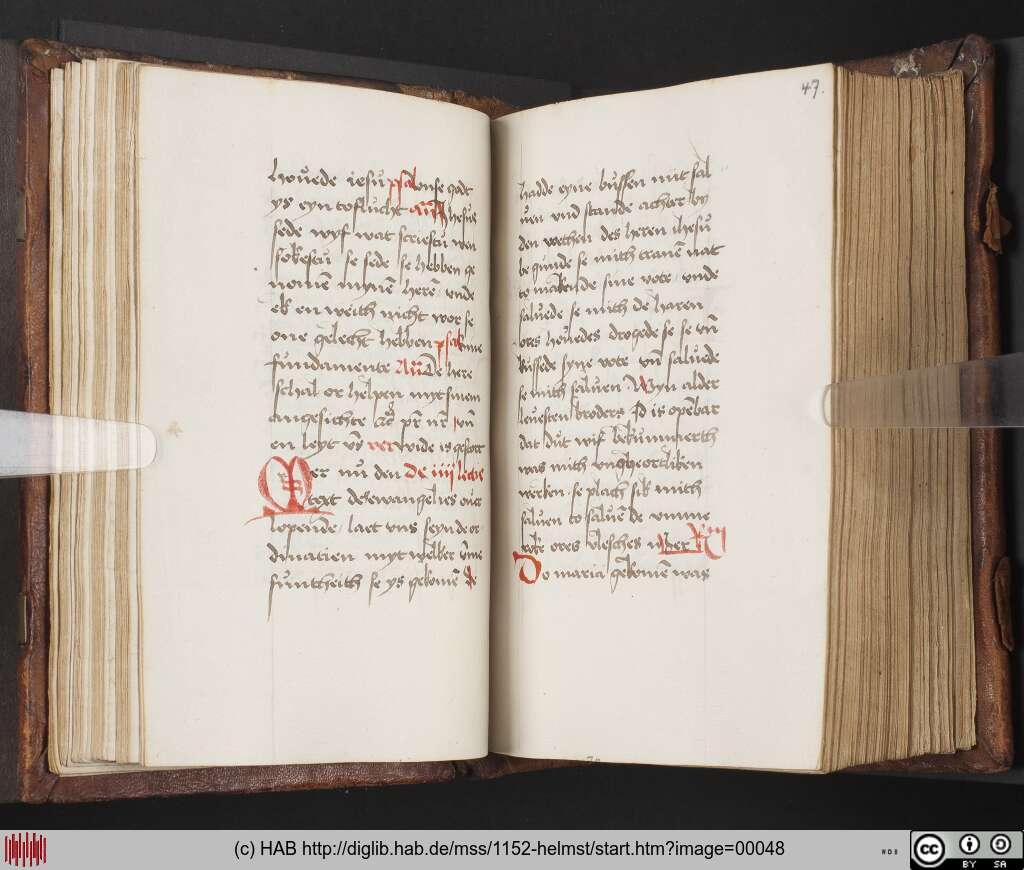 houede iesu psal onse godt
ys eyn toflucht añ Jhesus
sede wyf wat screiestu wen
sokestu se sede se hebben ge
nomē mynē herē vnde
ek en weith nicht wor se
one gelecht hebben psal sine
fundamente Añ De here
schal er helpen myt sinem
angesichte pr nr vn
en leyt vs ver wide is gestort
Mer nu den De iiij lectie
text des ewangelies ouer
lopende laet vns seyn de or
dinatien myt welker vme
suntheith se ys gekomē de
47.
hadde eyne bussen mit sal
uen vnd stande achter by
den vothen des heren ihesu
begunde se mith tranē nat
to makende sine vote vnde
saluede se mith dē haren
ores houedes drogede se se vn
kussede syne vote vn saluede
se mith saluen Myn alder
leuesten broders Id is opēbar
dat dut wif bekummerth
was mith vngheorliken
werken se plach sik mith
saluen to saluē de vmme
roke ores vlesches
Do maria gekomē was
(c) HAB http://diglib.hab.de/mss/1152-helmst/start.htm?image=00048
WDB
cc BY SA